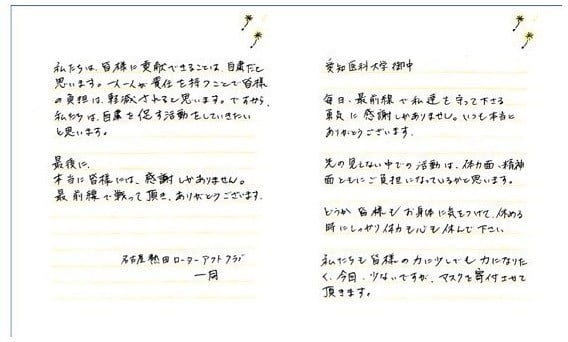 愛知医科大学 御中
毎日、最前線で私達を守って下さる
勇気に感謝しかありません。いつも本当に
ありがとうございます。
先の見えない中での活動は、体力面、精神
面ともにご負担になっているかと思います。
どうか皆様もお身体に気をつけて、休める
時にしっかり体も心も休んで下さい。
私たちも皆様の力に少しでも力になりた
く、今回、少ないですが、マスクを寄付させて
頂きます。
私たちは、皆様に貢献できることは、自粛だと
思います。一人一人が責任を持つことで皆様
の負担は、軽減されると思います。ですから、
私たちは、自粛を促す活動をしていきたい
と思います。
最後に、
本当に皆様には、感謝しかありません。
最前線で戦って頂き、ありがとうございます。
名古屋熱田ローターアクトクラブ
一同